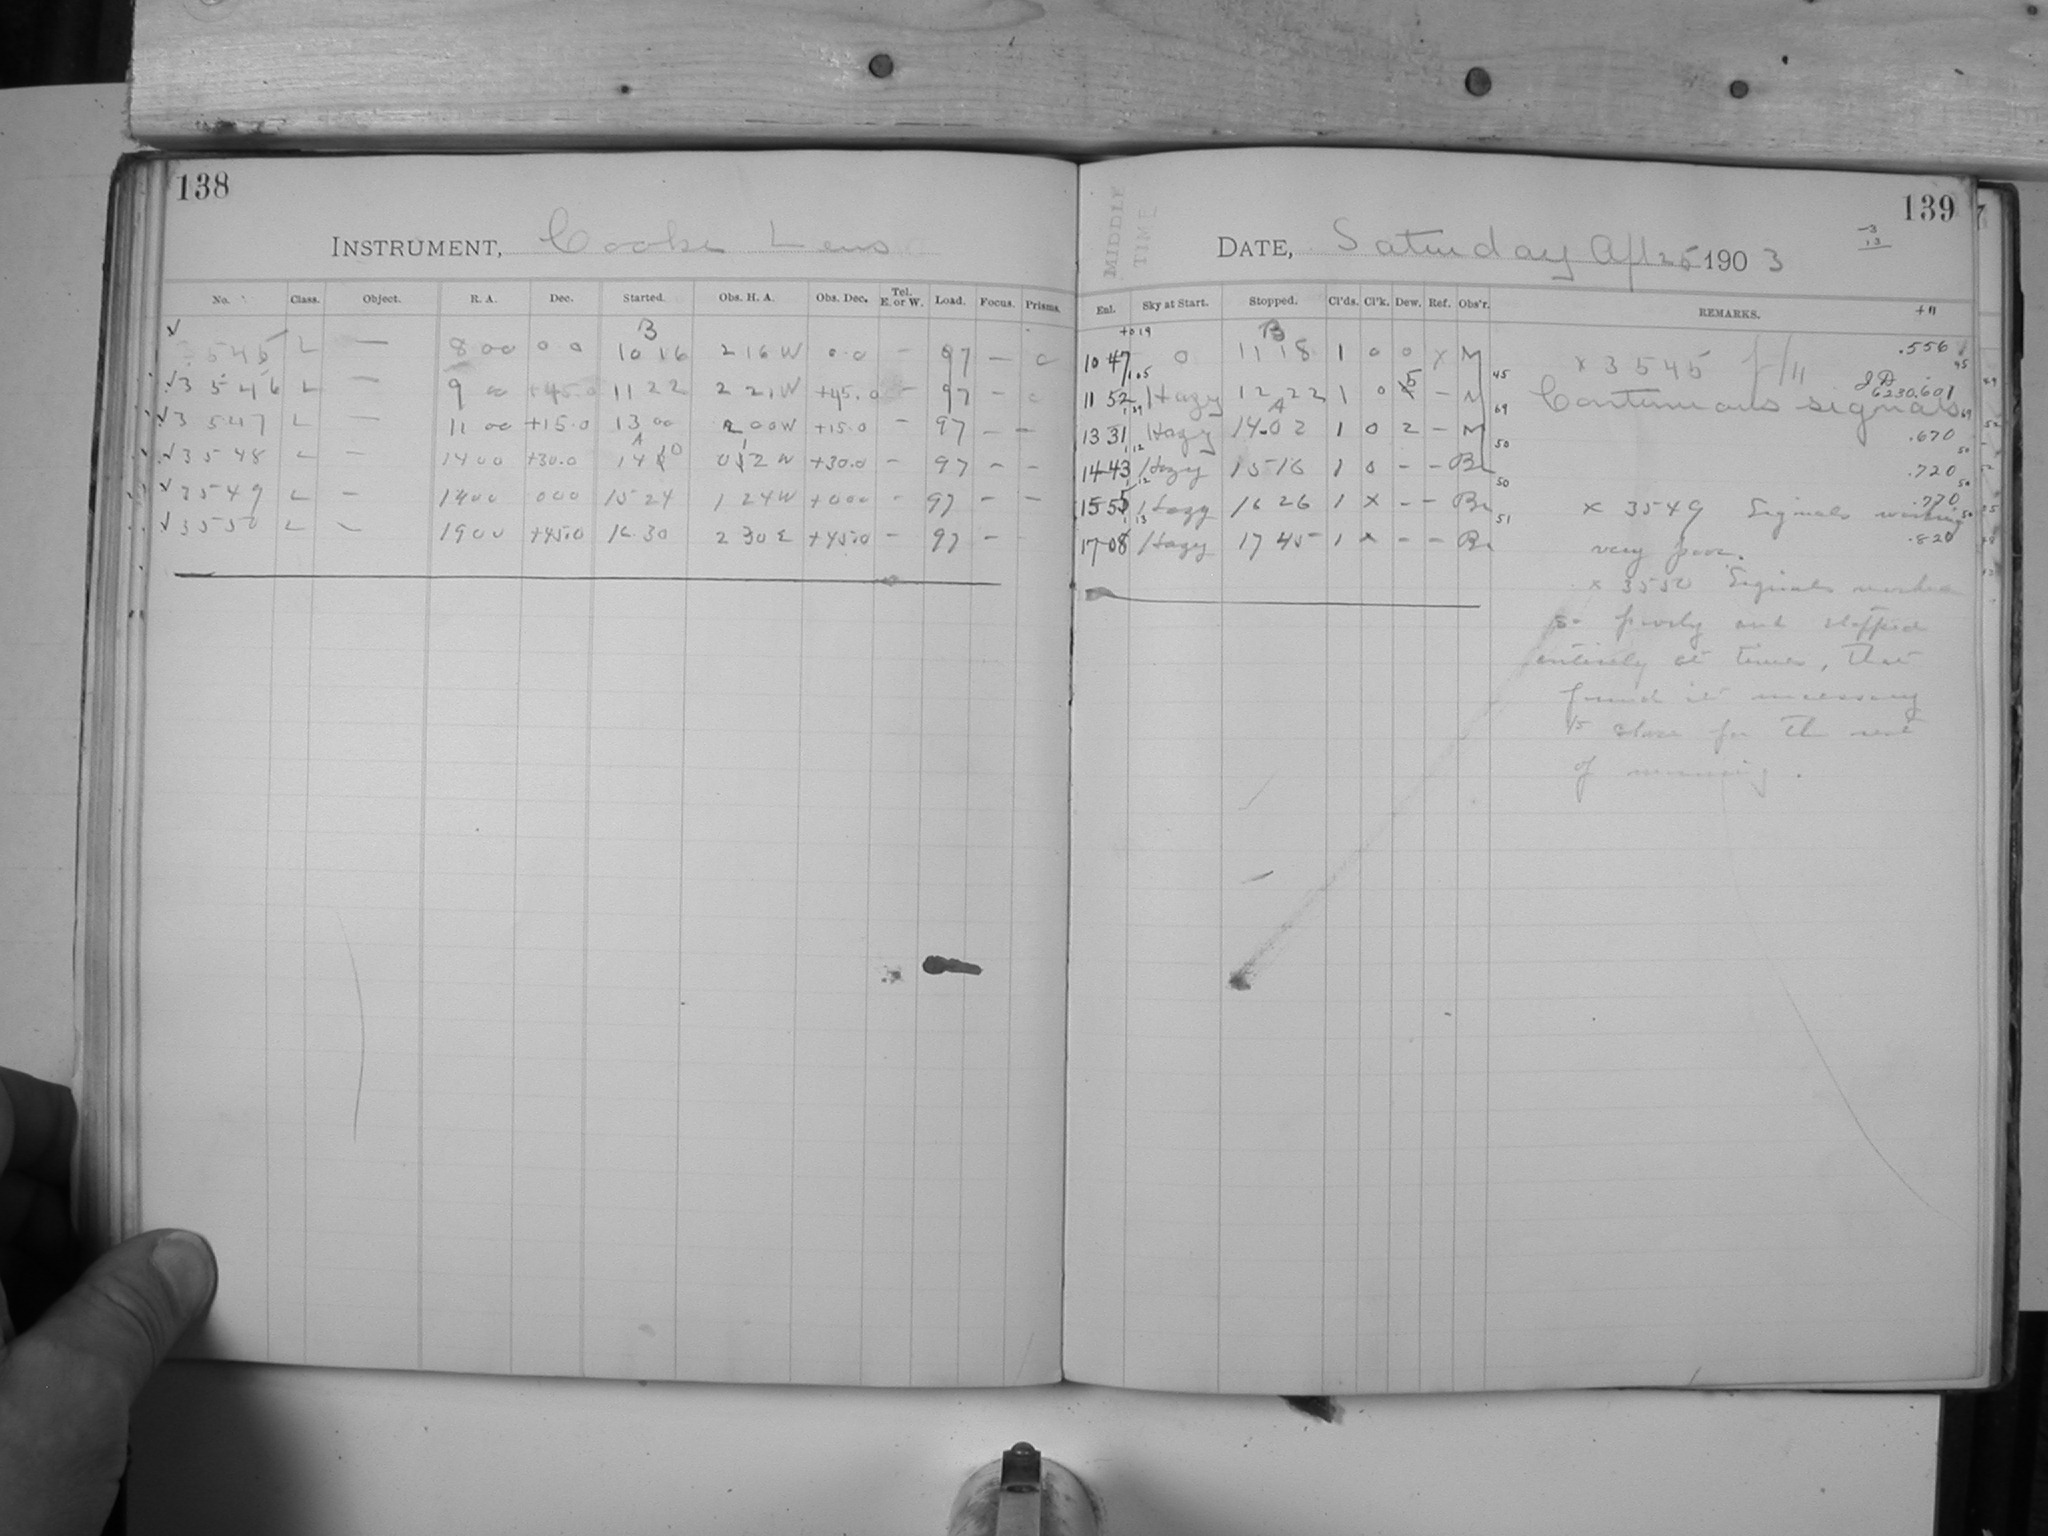 138
INSTRUMENT, Cooke Lens
No. Class. Object. R. A. Dec. Started. Obs. H. A. Obs. Dec. Tel. E. or W. Load. Focus. Prisms.
B
3545 L — 8 00 0 0 10 16 2 16 W 0.0 — 97 — 0
√3546 L — 9 00 +45.0 11 22 2 21 W +45.0 — 97 —
√3547 L — 11 00 +15.0 13 00 2 00 W +15.0 — 97 — —
A
√3548 L — 14 00 +30.0 14 10 0 12 W +30.0 — 97 — —
√3549 L — 1400 000 15 24 1 24 W +000 — 97 — —
√3550 L — 1900 +45.0 16 30 2 30 E +45.0 — 97 —
139
MIDDLE
TIME
DATE, Saturday Apl 25 1903
Enl. Sky at Start. Stopped. Cl'ds. Cl'k. Dew. Ref. Obs'r. REMARKS. +11
+0 19 B
10 47 0 11 18 1 0 0 X M
11 52 Hazy 12 22 1 0 5 — M
A
13 31 Hazy 14.02 1 0 2 — M
14 43 Hazy 15 16 1 0 — — Br
15 55 Hazy 16 26 1 x — — Br
17 08 Hazy 17 45 1 x — — Br
x 3545 f/11 .556
J D 6230.601
Continuous signals
.670
.720
.770
x 3549 Signals working
very poor. .820
x 3550 Signals worked
so poorly and stopped
entirely at times, that
found it necessary
to close for the rest
of morning.